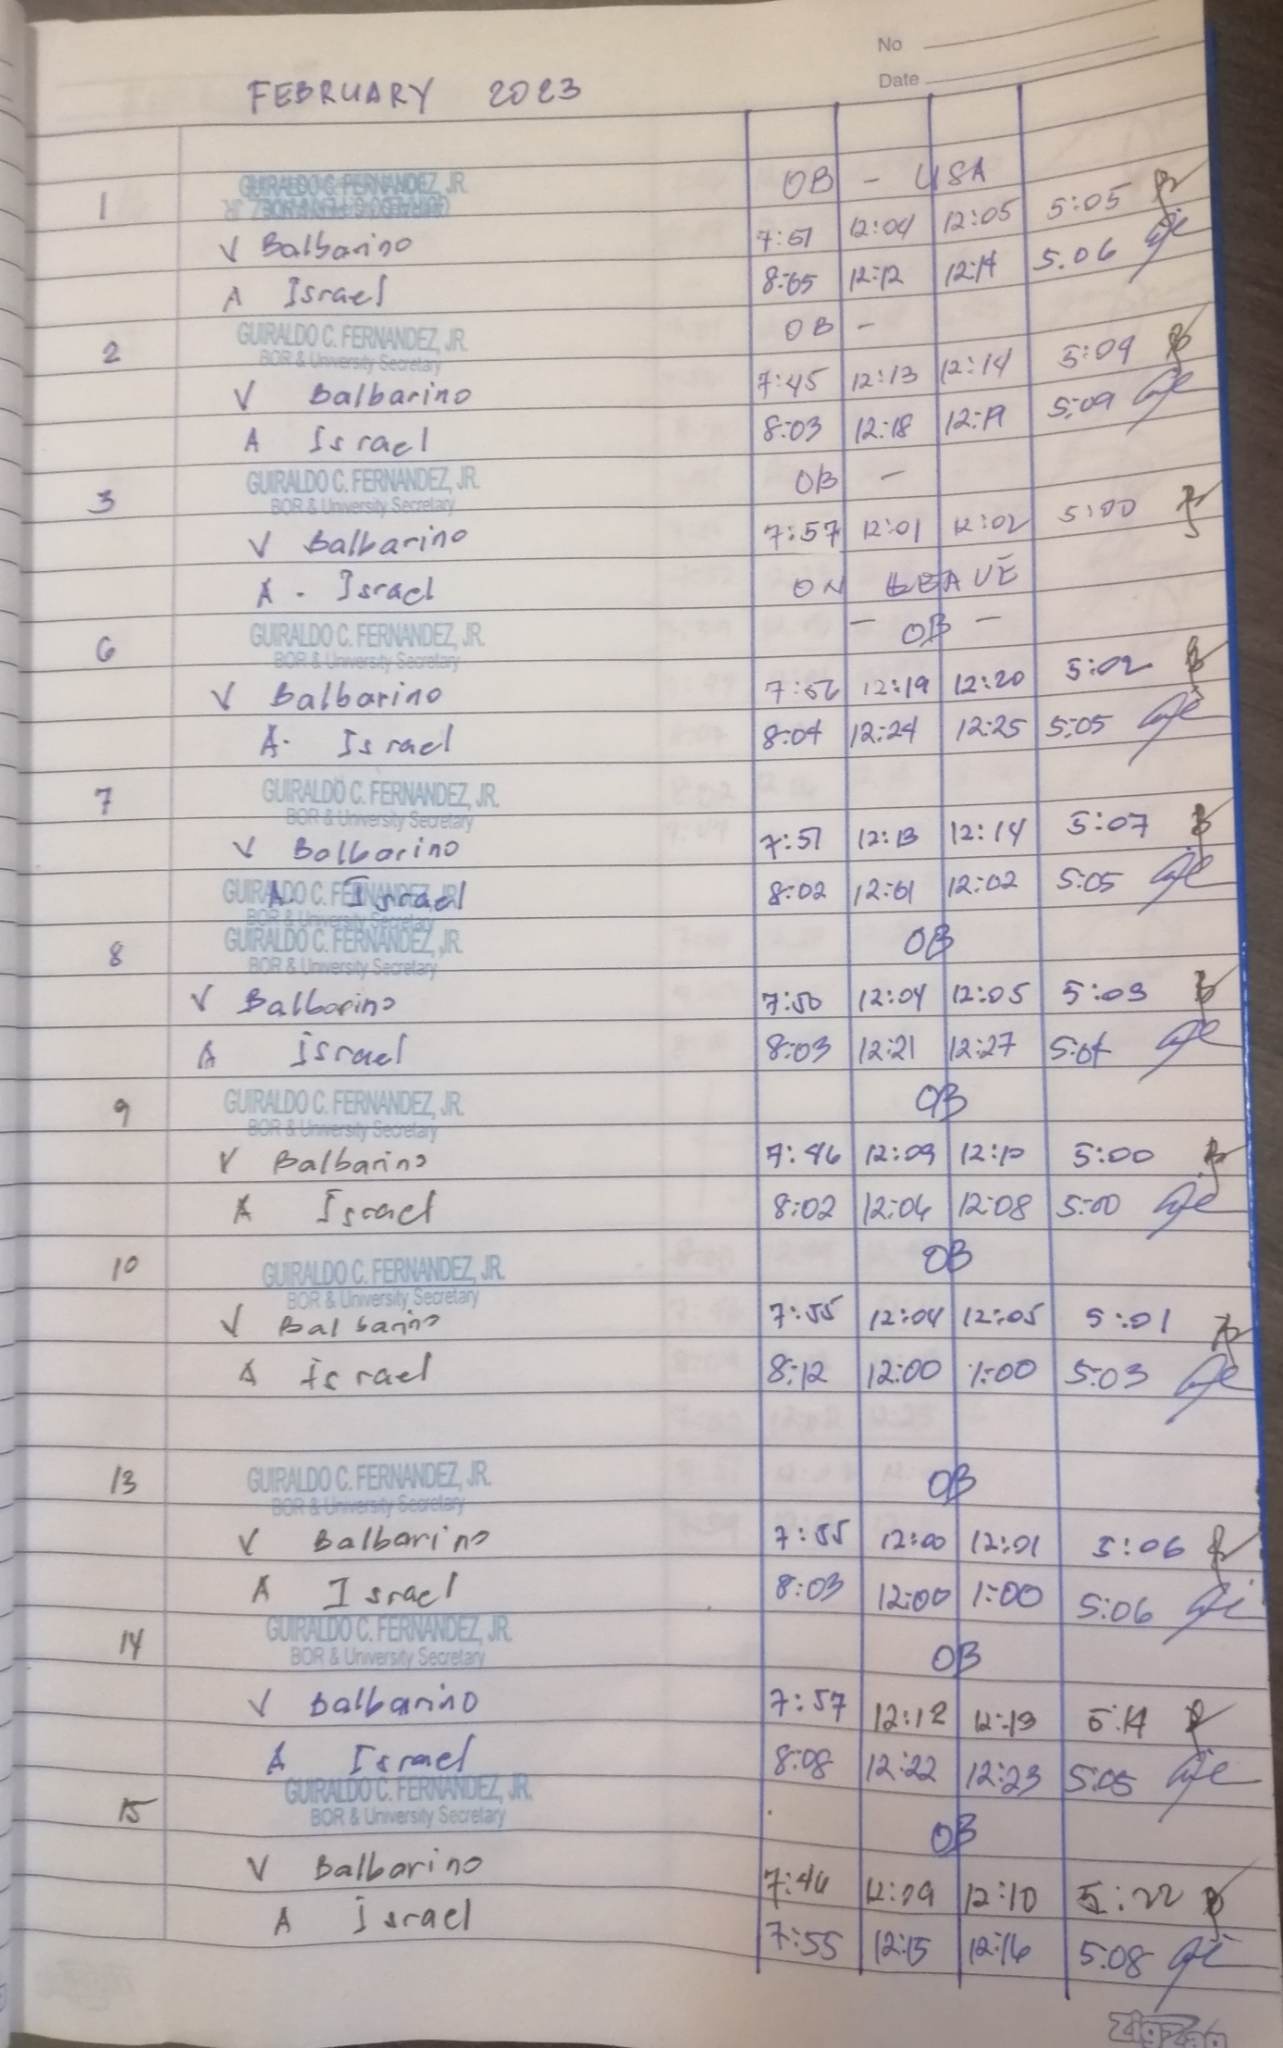 No
Date
FEBRUARY 2023
1 GUIRALDO C. FERNANDEZ, JR. OB - USA
V Balbarino 7:51 12:04 12:05 5:05
A Israel 8:05 12:12 12:14 5:06
2 GUIRALDO C. FERNANDEZ, JR. OB -
BOR & University Secretary
V Balbarino 7:45 12:13 12:14 5:09
A Israel 8:03 12:18 12:19 5:09
3 GUIRALDO C. FERNANDEZ, JR. OB -
BOR & University Secretary
V Balbarino 7:57 12:01 12:02 5:00
A. Israel ON LEAVE
6 GUIRALDO C. FERNANDEZ, JR. - OB -
BOR & University Secretary
V Balbarino 7:56 12:19 12:20 5:02
A. Israel 8:04 12:24 12:25 5:05
7 GUIRALDO C. FERNANDEZ, JR.
BOR & University Secretary
V Balbarino 7:51 12:13 12:14 5:07
GUIRALDO C. FERNANDEZ, JR.
A. Israel 8:02 12:01 12:02 5:05
BOR & University Secretary
8 GUIRALDO C. FERNANDEZ, JR. OB
BOR & University Secretary
V Balbarino 7:50 12:04 12:05 5:03
A Israel 8:03 12:21 12:27 5:04
9 GUIRALDO C. FERNANDEZ, JR. OB
BOR & University Secretary
V Balbarino 7:46 12:09 12:10 5:00
A Israel 8:02 12:06 12:08 5:00
10 GUIRALDO C. FERNANDEZ, JR. OB
BOR & University Secretary
V Balbarino 7:55 12:04 12:05 5:01
A Israel 8:12 12:00 1:00 5:03
13 GUIRALDO C. FERNANDEZ, JR. OB
BOR & University Secretary
V Balbarino 7:55 12:00 12:01 5:06
A Israel 8:03 12:00 1:00 5:06
14 GUIRALDO C. FERNANDEZ, JR. OB
BOR & University Secretary
V Balbarino 7:57 12:12 12:13 5:14
A Israel 8:08 12:22 12:23 5:05
15 GUIRALDO C. FERNANDEZ, JR. OB
BOR & University Secretary
V Balbarino 7:46 12:09 12:10 5:22
A Israel 7:55 12:15 12:16 5:08
ZigZag